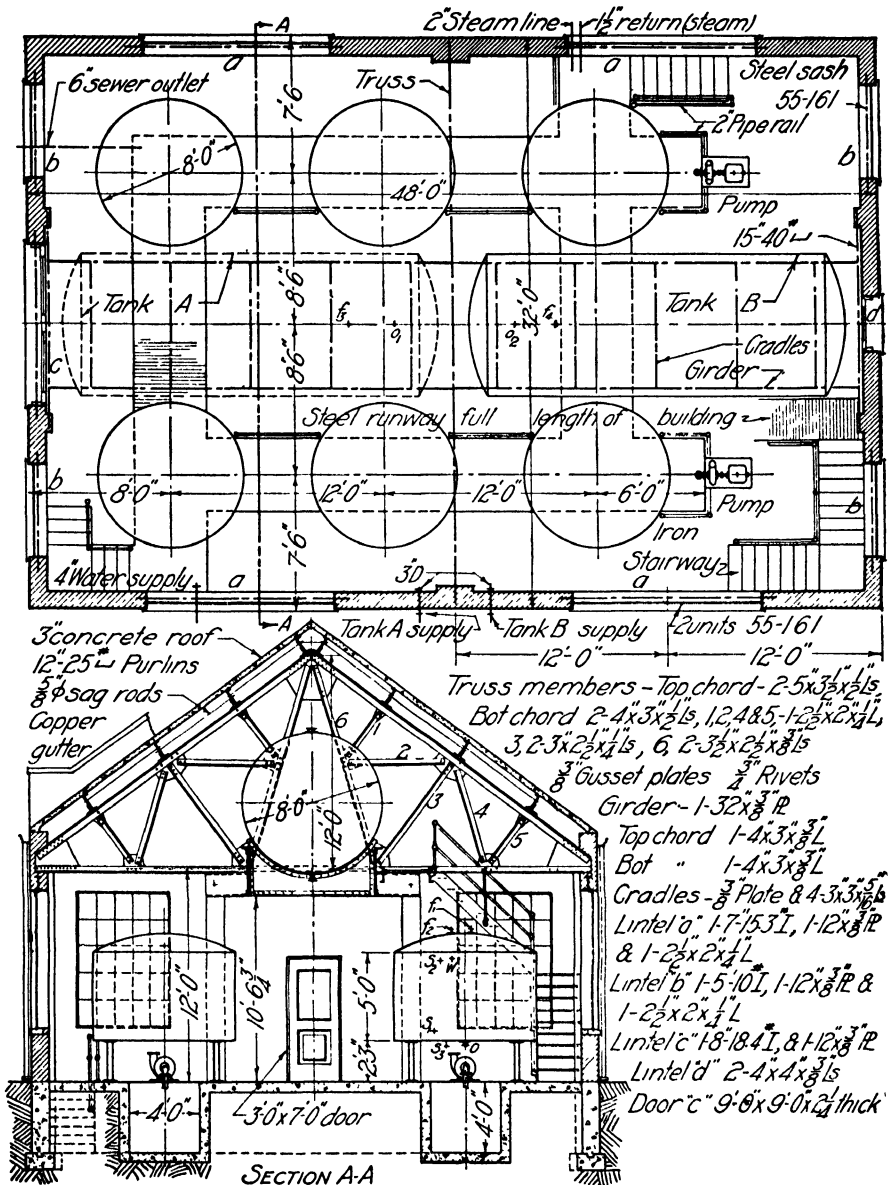 2"Steam line 1½"return(steam)
A
a
a
Steel sash
55-161
6"sewer outlet
7'-6
Truss
2"Pipe rail
b
b
8'-0"
48'-0"
Pump
15"-40#
Tank A
8'-6
f3
o1
o2
32'-0"
f4
Tank B
d
c
8'-6
Cradles
Girder
Steel runway full length of building
b
8'-0"
12'-0"
12'-0"
6'-0"
Pump
b
Iron
7'-6
Stairway
4"Water supply
a
3"D
a
A
Tank A supply
Tank B supply
2units 55-161
12'-0"
12'-0"
3"concrete roof
12"-25# Purlins
⅝"ϕ sag rods
Copper
gutter
Truss members - Top chord - 2-5"x3½"x½"Ls
Bot chord 2-4"x3"x½"Ls, 1,2,4&5,-1-2½"x2"x¼"L,
3, 2-3"x2½"x¼"Ls, 6, 2-3½"x2½"x⅜"Ls
⅜"Gusset plates ¾"Rivets
Girder - 1-32"x⅜"PL
Top chord 1-4"x3"x⅜"L
Bot " 1-4"x3"x⅜"L
Cradles - ⅜"Plate & 4-3"x3"x5/16"Ls
Lintel "a" 1-7"-15.3#I, 1-12"x⅜"PL
& 1-2½"x2"x¼"L
Lintel "b" 1-5"-10#I, 1-12"x⅜"PL &
1-2½"x2"x¼"L
Lintel "c" 1-8"-18.4#I, & 1-12"x⅜"PL
Lintel "d" 2-4"x4"x⅜"Ls
Door "c" 9'-8"x9'-0"x2¼"thick
6
2
3
4
5
8'-0"
12'-0"
f1
f2
s2
w
12'-0"
10'-6¾"
5'-0"
s4
2'3"
s3
o
4'-0"
3'-0"x7'-0"door
4'-0"
SECTION A-A